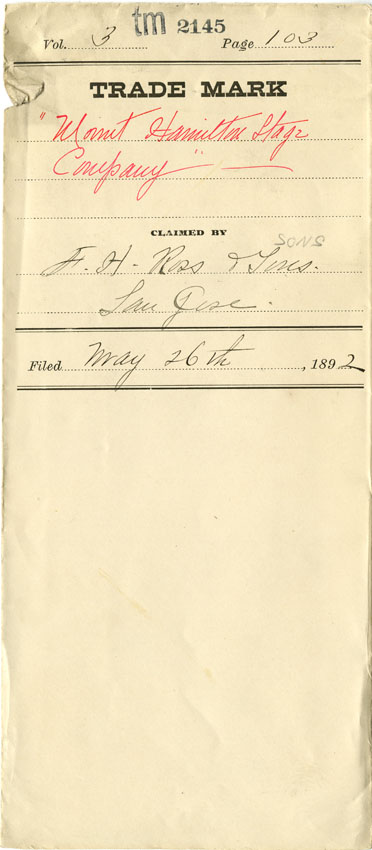 tm 2145
Vol. 3 Page 103
TRADE MARK
"Mount Hamilton Stage
Company"
CLAIMED BY
SONS
F. H. Ross & Sons.
San Jose.
Filed May 26th, 1892